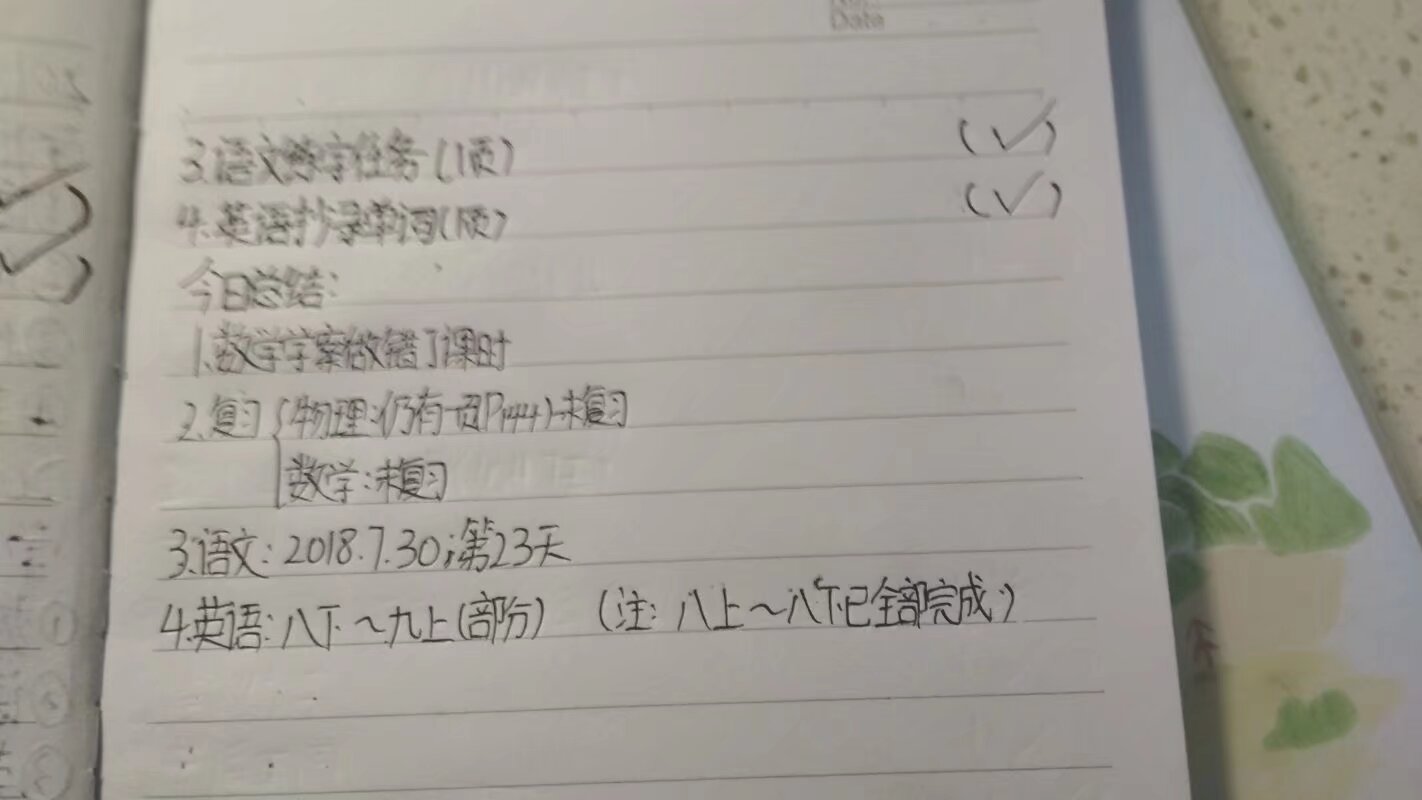 Date
3.语文练字任务(1页) (✓)
4.英语抄录单词(1页) (✓)
今日总结:
1.数学学案做错了课时
2.复习{物理:(仍有一页P144)未复习
数学:未复习
3.语文: 2018.7.30;第23天
4.英语: 八下~九上(部分) (注: 八上~八下已全部完成.)